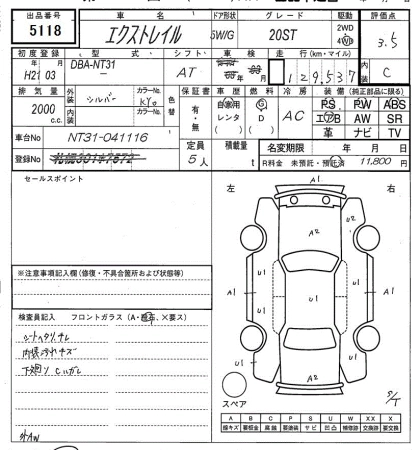 出品番号 車名 ドア形状 グレード 駆動 評価点
5118 エクストレイル 5W/G 20ST 2WD 4WD 3.5
初度登録 型式 シフト 車検 走行(km・マイル) 内装
H21年 03月 DBA-NT31 AT 年 月 129,537 C
排気量 外装 シルバー カラーNo. KY0 色替 保証書 車歴 燃料 冷房 装備(純正部品に限る)
2000 c.c. 内装 カラーNo. 有・無 自家用 レンタ G D AC PS PW ABS
エアB AW SR
革 ナビ TV
車台No NT31-041116 定員 積載量 名変期限 年 月 日
登録No 5人 t R料金 未預託・預託済 11,800円
セールスポイント
左 右
A1
A2
U2
U1 U1
A1 U1 A1
U1 U1
A2
A1
スペア
S/T
※注意事項記入欄(修復・不具合箇所および状態等)
検査員記入 フロントガラス(A・飛石、×要ス)
シートヘタリ、チレ
内張汚れキズ
下廻りCハガレ
外AW
A B C P S U W X XX
線キズ 腐蝕 要塗装 サビ 凹凸 補修跡 交換跡 要交換